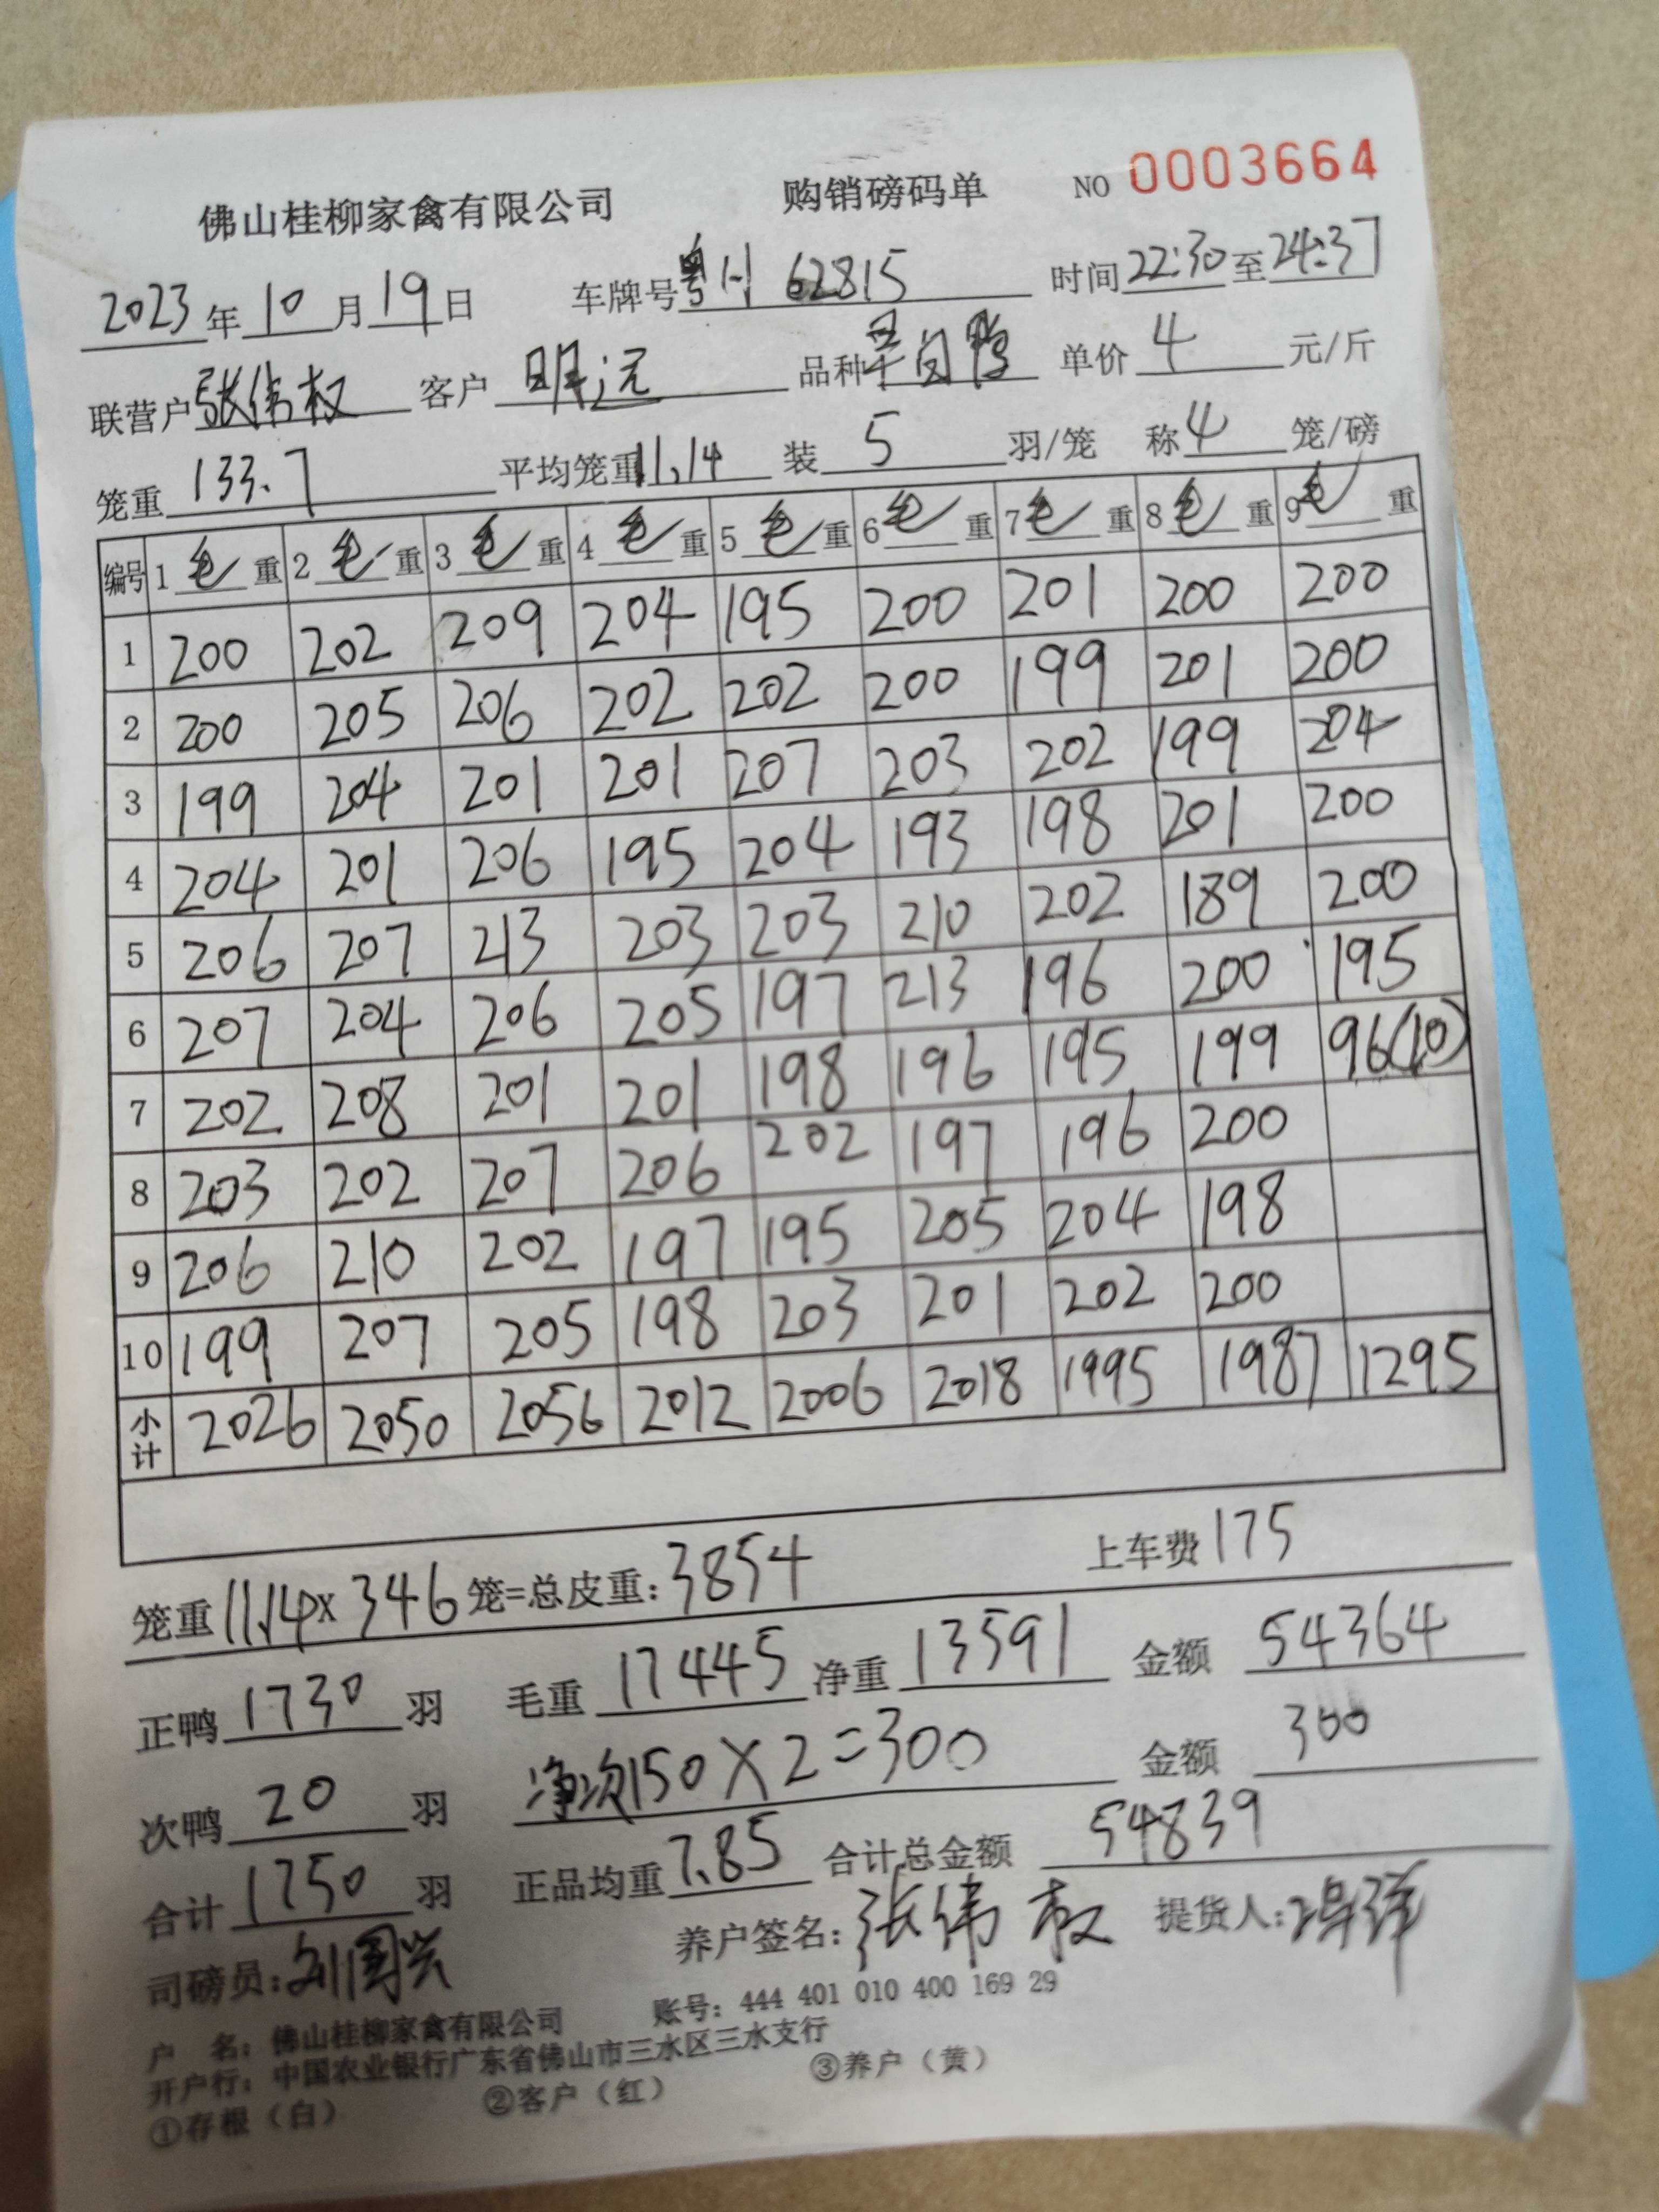 佛山桂柳家禽有限公司 购销磅码单 NO 0003664
2023年10月19日 车牌号粤H 62815 时间22:30至24:37
联营户张伟权 客户明远 品种 白鸭 单价4元/斤
笼重133.7 平均笼重11.14 装5羽/笼 称4笼/磅
编号 1毛重 2毛重 3毛重 4毛重 5毛重 6毛重 7毛重 8毛重 9毛重
1 200 202 209 204 195 200 201 200 200
2 200 205 206 202 202 200 199 201 200
3 199 204 201 201 207 203 202 199 204
4 204 201 206 195 204 193 198 201 200
5 206 207 213 203 203 210 202 189 200
6 207 204 206 205 197 213 196 200 195
7 202 208 201 201 198 196 195 199 96(10)
8 203 202 207 206 202 197 196 200
9 206 210 202 197 195 205 204 198
10 199 207 205 198 203 201 202 200
小计 2026 2050 2056 2012 2006 2018 1995 1987 1295
笼重11.14x346笼=总皮重:3854 上车费175
正鸭1730羽 毛重17445净重13591 金额54364
次鸭20羽 净次150X2=300 金额300
合计1750羽 正品均重7.85 合计总金额54839
司磅员:刘国兴 养户签名:张伟权 提货人:
户 名:佛山桂柳家禽有限公司 账号:444 401 010 400 169 29
开户行:中国农业银行广东省佛山市三水区三水支行
①存根(白) ②客户(红) ③养户(黄)